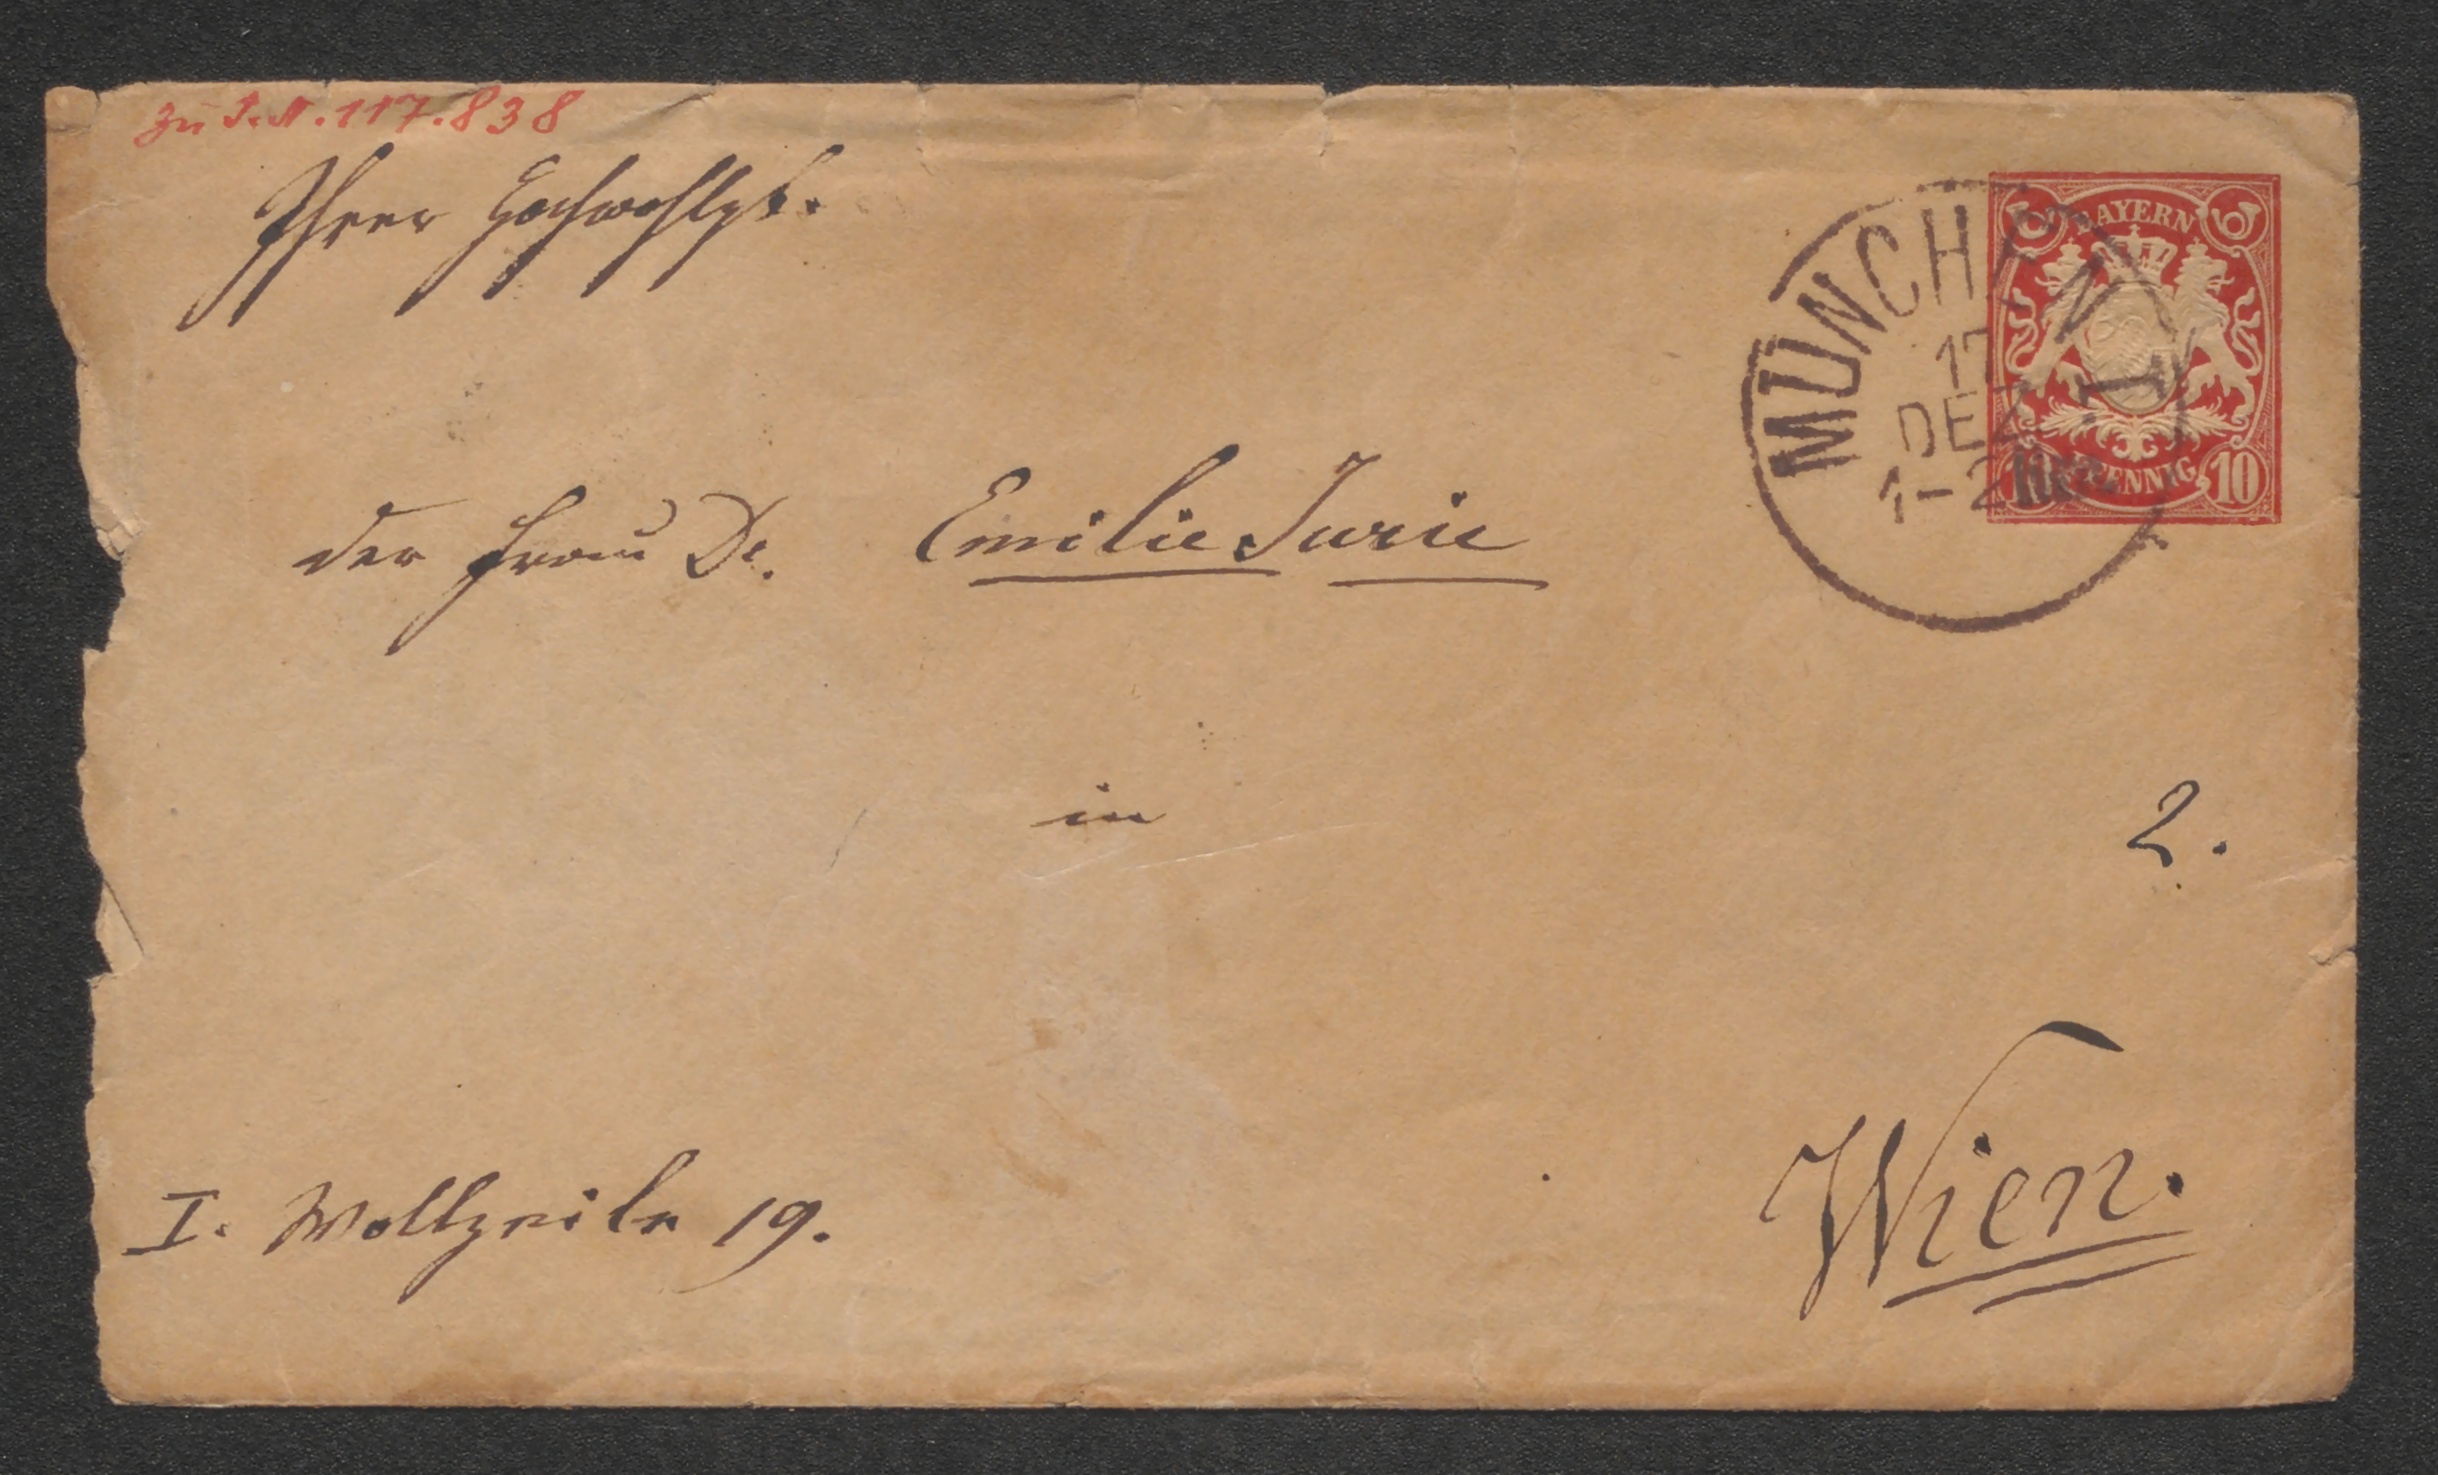 zu I.N. 117.838
Ihrer Hochwohlgb.
BAYERN
MÜNCHEN I
17
DEZ
1-2
PFENNIG 10
der Frau Dr. Emilie Jurie
in
2.
I. Wollzeile 19.
Wien.